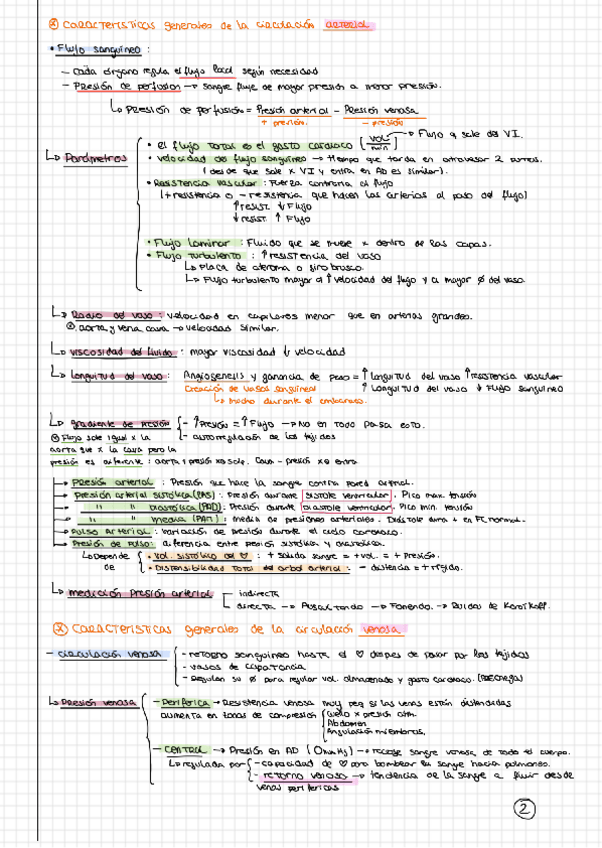 ⊛ CARACTERÍSTICAS generales de la circulación arterial
• Flujo sanguíneo :
– Cada órgano regula el flujo local según necesidad
– PRESIÓN DE perfusión → sangre fluye de mayor presión a menor presión.
↳ PRESIÓN DE perfusión = Presión arterial – Presión venosa
+ presión. – presión
↳ Parámetros
• El flujo total es el gasto cardiaco [vol/min] → Flujo q sale del VI.
• velocidad de flujo sanguíneo → tiempo que tarda en atravesar 2 puntos.
(desde que sale x VI y entra en AD es similar).
• Resistencia vascular : Fuerza contraria al flujo
(+ resistencia o – resistencia que hacen las arterias al paso del flujo)
↑ resist. ↓ Flujo
↓ resist. ↑ Flujo
• Flujo laminar : Fluido que se mueve x dentro de las capas.
• Flujo turbulento : ↑ resistencia del vaso
↳ Placa de ateroma o giro brusco.
↳ Flujo turbulento mayor a ↑ velocidad del flujo y a mayor Ø del vaso.
↳ Radio del vaso : velocidad en capilares menor que en arterias grandes.
⊛ aorta y vena cava → velocidad similar.
↳ viscosidad del fluido : mayor viscosidad ↓ velocidad
↳ longitud del vaso : Angiogenesis y ganancia de peso = ↑ longitud del vaso ↑ resistencia vascular
Creación de vasos sanguíneos ↑ longitud del vaso ↓ Flujo sanguíneo
↳ mucho durante el embarazo.
↳ gradiente de presión { – ↑ Presión = ↑ Flujo → No en todo pasa esto.
⊛ Flujo sale igual x la – autorregulación de los tejidos
aorta que x la cava pero la
presión es diferente : aorta + presión xq sale. Cava – presión xq entra
→ Presión arterial : Presión que hace la sangre contra pared arterial.
→ Presión arterial sistólica (PAS) : Presión durante sístole ventricular. Pico max. tensión
→ " " Diastólica (PAD) : Presión durante diástole ventricular. Pico min. tensión
→ " " media (PAM) : media de presiones arteriales. Diástole dura + en FC normal.
→ Pulso Arterial : variación de presión durante el ciclo cardiaco.
→ Presión de pulso : diferencia entre presión sistólica y diastólica.
↳ Depende de { • Vol. sistólico del ♡ : + salida sangre = + vol. = + Presión.
• Distensibilidad total del árbol arterial : – distencia = + rígido.
↳ medición presión arterial { indirecta
directa → Auscultando → Fonendo. → Ruidos de Korotkoff.
⊛ CARACTERÍSTICAS generales de la circulación venosa
– circulación venosa { – retorno sanguíneo hasta el ♡ despes de pasar por los tejidos
– vasos de capacitancia
– Regulan su Ø para regular vol. almacenado y gasto cardiaco. (PRECARGA)
↳ Presión venosa { – Periférica → Resistencia venosa muy peq si las venas están distendidas
aumenta en zonas de compresión { cuello x presión atm.
Abdomen
Angulación miembros.
– CENTRAL → Presión en AD (0mmHg) → recoge sangre venosa de todo el cuerpo.
↳ regulada por { – capacidad de ♡ para bombear la sangre hacia pulmones.
– retorno venoso → tendencia de la sangre a fluir desde
venas periféricas
2